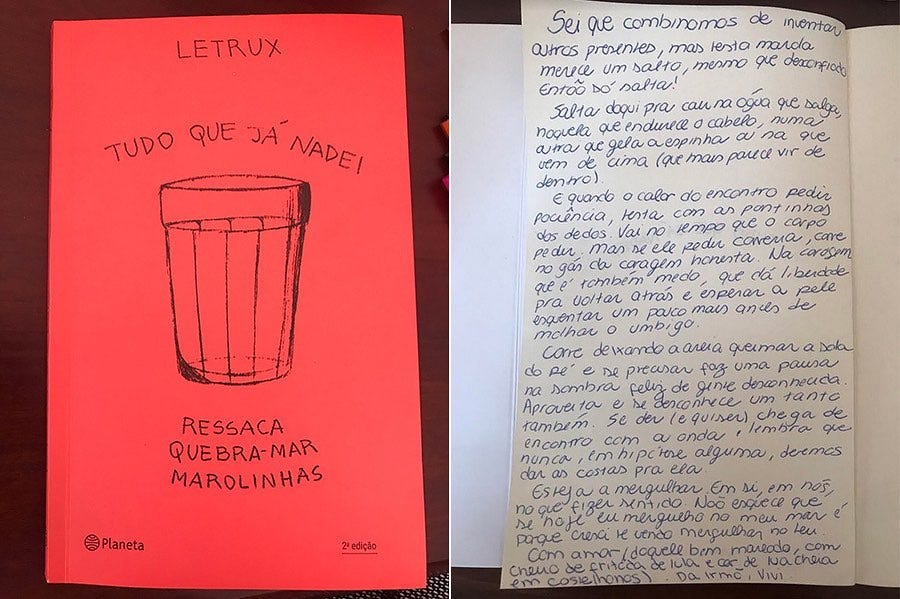 LETRUX
TUDO QUE JÁ NADEI
RESSACA
QUEBRA-MAR
MAROLINHAS
Planeta
2ª edição
Sei que combinamos de inventar
outros presentes, mas testa marcda
merece um salto, mesmo que desconfiado
Então só salta!
Salta daqui pra cair na água que salga,
naquela que endurece o cabelo, numa
outra que gela a espinha ou na que
vem de cima (que mais parece vir de
dentro).
E quando o calor do encontro pedir
paciência, tenta com as pontinhas
dos dedos. Vai no tempo que o corpo
pedir. Mas se ele pedir correria, corre
no gás da coragem honesta. Na coragem
que é também medo, que dá liberdade
pra voltar atrás e esperar a pele
esquentar um pouco mais antes de
molhar o umbigo.
Corre deixando a areia queimar a sola
do pé e se precisar faz uma pausa
na sombra feliz de gente desconhecida.
Aproveita e se desconhece um tanto
também. Se der (e quiser) chega de
encontro com a onda e lembra que
nunca, em hipótese alguma, devemos
dar as costas pra ela.
Esteja a mergulhar. Em si, em nós,
no que fizer sentido. Não esquece que
se hoje eu mergulho no meu mar é
porque cresci te vendo mergulhar no teu.
Com amor (daquele bem mareado, com
cheiro de fritada de lula e cor de lua cheia
em Castelhanos) Da irmã, Vivi